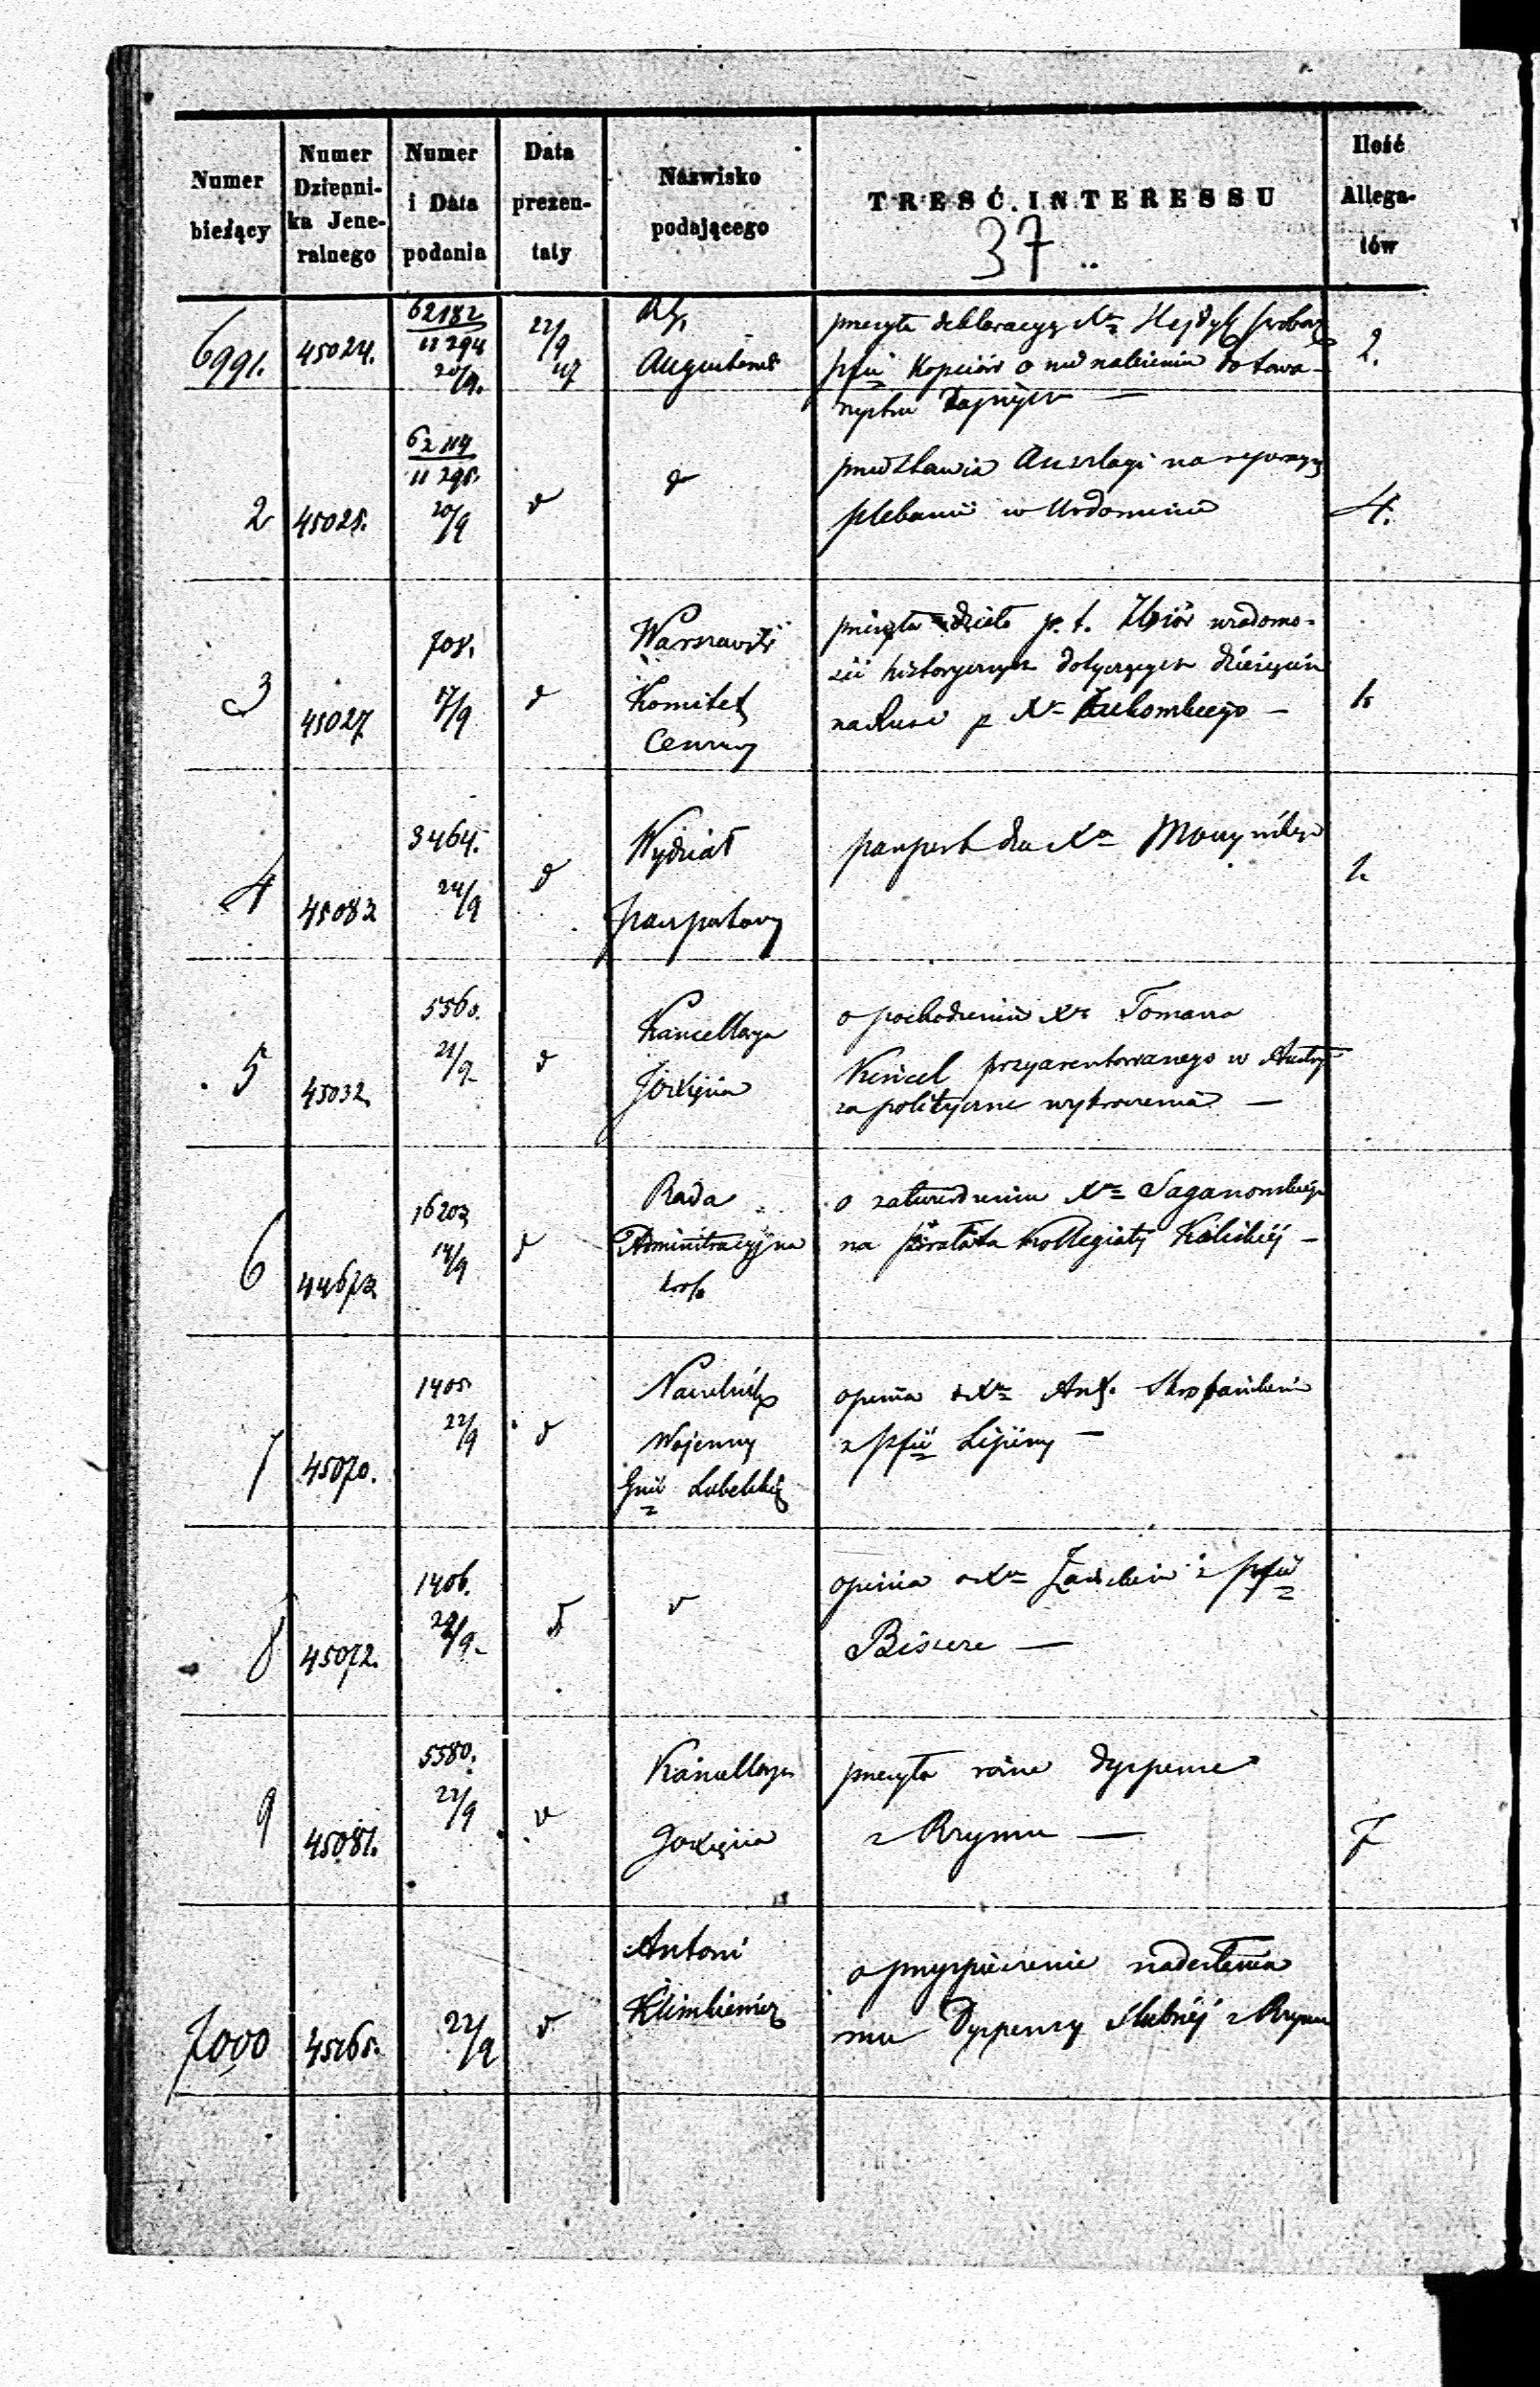 Numer bieżący | Numer Dzienni- ka Jene- ralnego | Numer i Data podania | Data prezen- taty | Nazwisko podającego | TREŚĆ INTERESSU | Ilość Allega- tów
37
6991. | 45024. | 62182 11294 20/9. | 22/9 | Augustowski | przesyła deklaracyą Xa Hejdyk probosz 2.
pfii Kopciów o nie należeniu do towa-
rzystw Tajnych —
2 | 45025. | 62114 11295. 20/9 | d | d | przedstawia Anszlagi na reperacyą
plebanii w Urdominie 4.
3 | 45027 | 708. 17/9 | d | Warszawski
Komitet
Cenzury
przesyła dzieło p. t. Zbiór wiadomo-
ści historycznych dotyczących dziesięcin
na Rusi p X
4 | 45083 | 3464. 24/9 | d | Wydział
paszportowy
paszport dla Xa
5 | 45032 | 5560. 21/9 | d | Kancellarya
JO Xięcia
o pochodzeniu Xa Tomasza
Kencel przyaresztowanego w Austryi
za polityczne wykroczenia —
6 | 44673 | 16203 14/9 | d | Rada
Administracyjna
Król.
o zatwierdzeniu Xa Saganowskiego
na prałata Kollegiaty Kaliskiej —
7 | 45070. | 1405 22/9 | d | Naczelnik
Wojenny
Gub Lubelskiej
opinia o Xa Ant.
z pfii
8 | 45072. | 1406. 22/9 | d | d | opinia o Xa z pfii
Biszcze —
9 | 45081. | 5580. 22/9 | d | Kancellarya
JO Xięcia
przesyła różne dyspense
z Rzymu — 7
7000 | 45165. | 22/9 | d | Antoni
Klimkiewicz
o przyspieszenie nadesłania
mu Dyspensy ślubnéj z Rzymu